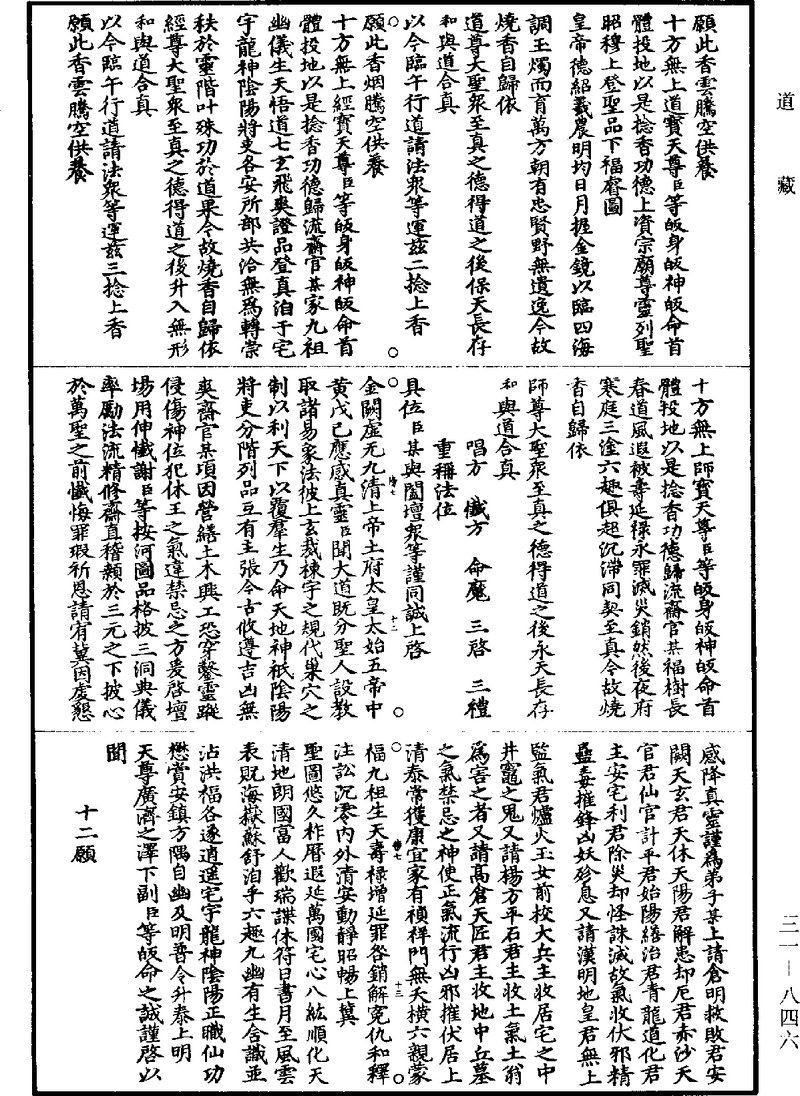 道藏
願此香雲騰空供養
十方無上道寶天尊臣等皈身皈神皈命首
體投地以是捻香功德上資宗廟尊靈列聖
昭穆上登聖品下福睿圖
皇帝德紹羲農明均日月握金鏡以臨四海
調玉燭而育萬方朝有忠賢野無遺逸今故
燒香自歸依
道尊大聖衆至真之德得道之後保天長存
和與道合真
以今臨午行道請法衆等運茲二捻上香
願此香烟騰空供養
十方無上經寶天尊臣等皈身皈神皈命首
體投地以是捻香功德歸流齋官某家九祖
幽儀生天悟道七玄飛爽證品登真洎于宅
宇龍神陰陽將吏各安所部共洽無爲轉崇
秩於靈階叶殊功於道果今故燒香自歸依
經尊大聖衆至真之德得道之後升入無形
和與道合真
以今臨午行道請法衆等運茲三捻上香
願此香雲騰空供養
十方無上師寶天尊臣等皈身皈神皈命首
體投地以是捻香功德歸流齋官某福樹長
春道風遐被壽延祿永罪滅災銷然後夜府
寒庭三塗六趣俱起沉滯同契至真今故燒
香自歸依
師尊大聖衆至真之德得道之後永天長存
和與道合真
唱方 懺方 命魔 三啓 三禮
重稱法位
具位臣某與闔壇衆等謹同誠上啓
金闕虛无九清上帝土府太皇太始五帝中
黃戊己應感真靈臣聞大道既分聖人設教
取諸易象法彼上玄裁棟宇之規代巢穴之
制以利天下以覆羣生乃命天地神祇陰陽
將吏分階列品互有主張今古攸遵吉凶無
爽齋官某項因營繕土木興工恐穿鑿靈蹤
侵傷神位犯休王之氣違禁忌之方爰啓壇
場用伸懺謝臣等按河圖品格披三洞典儀
率勵法流精修齋直稽顙於三元之下披心
於萬聖之前懺悔罪瑕祈恩請宥冀因虔懇
感降真靈謹爲弟子某上請倉明救敗君安
闕天玄君天休天陽君解患却厄君赤沙天
官君仙官計平君始陽繕治君青龍道化君
主安宅利君除災却怪誅滅故氣收伏邪精
蠱毒摧鋒凶妖殄息又請漢明地皇君無上
監氣君爐火玉女前校大兵主收居宅之中
井竈之鬼又請楊方平石君主收土氣土翁
爲害之者又請高倉天匠君主收地中丘墓
之氣禁忌之神使正氣流行凶邪摧伏居上
清泰常獲康宜家有禎祥門無夭橫六親蒙
福九祖生天壽祿增延罪咎銷解冤仇和釋
注訟沉零內外清安動靜昭暢上冀
聖圖悠久祚曆遐延萬國宅心八紘順化天
清地朗國富人歡瑞諜休符日書月至風雲
表貺海嶽蘇舒洎乎六趣九幽有生含識並
沾洪福各遂逍遥宅宇龍神陰陽正職仙功
懋賞安鎮方隅自幽及明普令升泰上明
天尊廣濟之澤下副臣等皈命之誠謹啓以
聞
十二願
三一—八四六